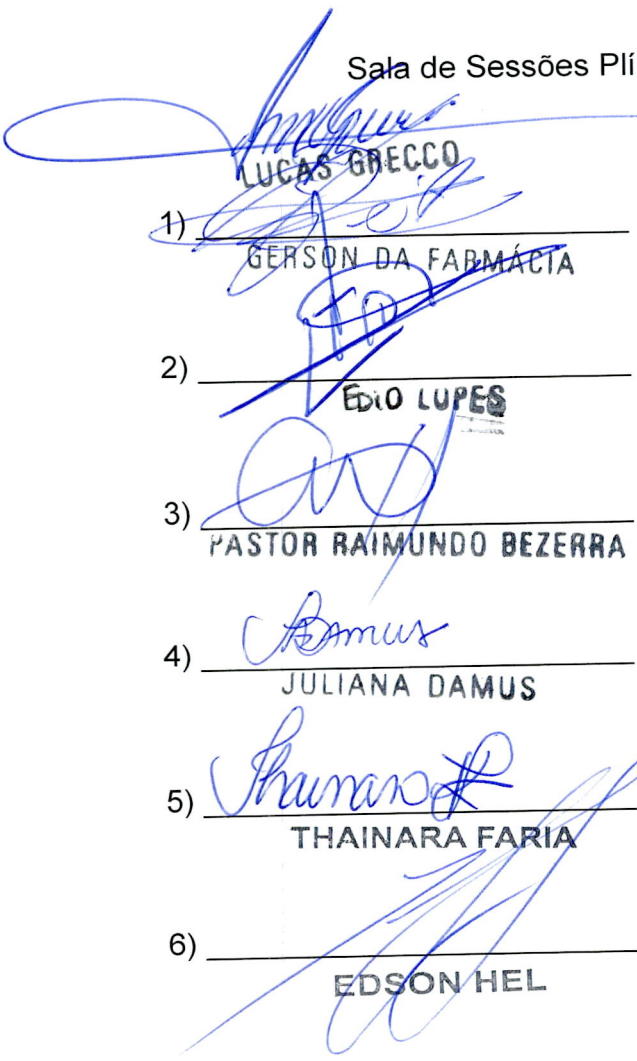 Sala de Sessões Plí
LUCAS GRECCO
1)
GERSON DA FARMÁCIA
2)
EDIO LUPES
3)
PASTOR RAIMUNDO BEZERRA
4) Damus
JULIANA DAMUS
5) Thainara
THAINARA FARIA
6)
EDSON HEL